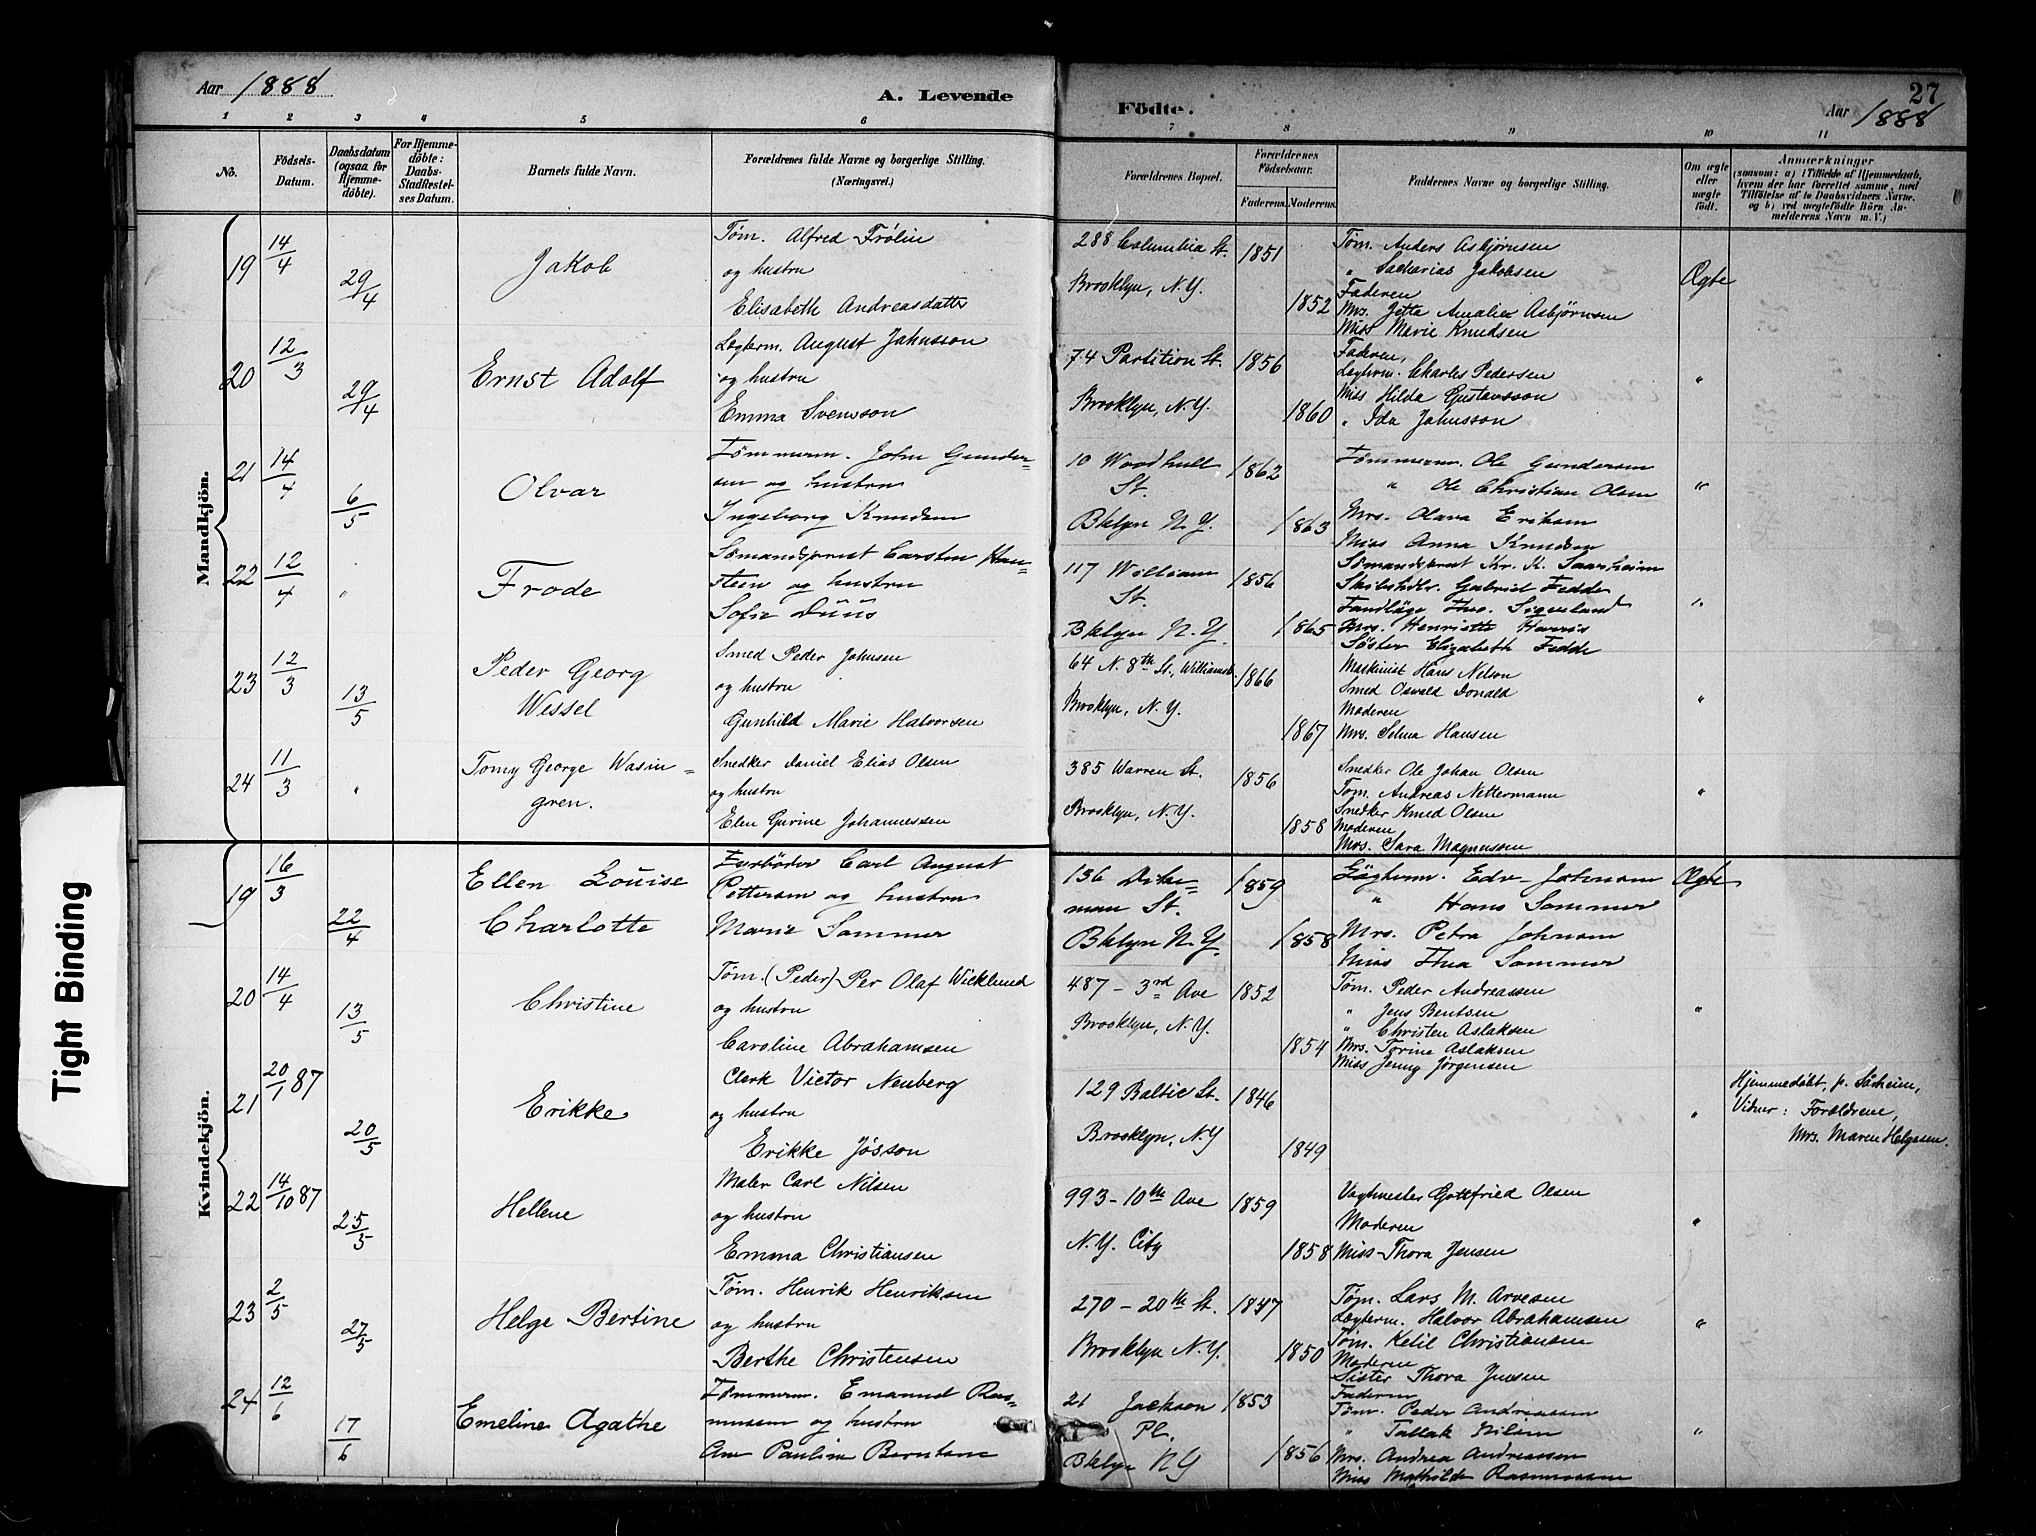 Aar 1888
A. Levende
Födte.
27
Aar 1888
1 2 3 4 5 6 7 8 9 10 11
No.
Födsels-
Datum.
Daabsdatum
(ogsaa for
Hjemme-
döbte).
For Hjemme-
döbte:
Daabs-
Stadfæstel-
ses Datum.
Barnets fulde Navn.
Forældrenes fulde Navne og borgerlige Stilling.
(Næringsvei.)
Forældrenes Bopæl.
Forældrenes
Födselsaar.
Faderens. Moderens.
Faddernes Navne og borgerlige Stilling.
Om ægte
eller
uægte
födt.
Anmærkninger
(saasom: a) i Tilfælde af Hjemmedaab,
hvem der har forrettet samme, med
Tilföielse af to Daabsvidners Navne.
og b) ved uægtefödte Börn An-
melderens Navn m. V.)
Mandkjön.
19
14/4
29/4
Jakob
Tøm. Alfred Frölin
og hustru
Elisabeth Andreasdatter
288 Columbia St.
Brooklyn, N.Y.
1851
1852
Tøm. Anders Asbjørnsen
" Sacharias Jakobsen
Faderen
Mrs. Jetta Amalia Asbjørnsen
Miss Marie Knudsen
Ægte
20
12/3
29/4
Ernst Adolf
Lægterm. August Johnsson
og hustru
Emma Svensson
74 Partition St.
Brooklyn, N.Y.
1856
1860
Faderen,
Lægterm. Charles Pedersen
Miss Hilda Gustavsson
" Ida Johnsson
"
21
14/4
6/5
Olvar
Tømmerm. John Gunder-
sen og hustru
Ingeborg Knudsen
10 Woodhull
St.
Bklyn N.Y.
1862
1863
Tømmerm. Ole Gundersen
" Ole Christian Olsen
Mrs. Olava Eriksen
Miss Anna Knudsen
"
22
12/4
"
Frode
Sømandsprest Carsten Han-
steen og hustru
Sofie Düüs
117 William
St.
Bklyn N.Y.
1856
1865
Sømandsprest Kr. K. Saarheim
Skibshdlr. Gabriel Fedde
Tandläge Theo. Sigveland
Mrs. Henriette Harris
Søster Elizabeth Fedde
"
23
12/3
13/5
Peder Georg
Wessel
Smed Peder Johnsen
og hustru
Gunhild Marie Halvorsen
64 N. 8th St., Williamsb.
Brooklyn, N.Y.
1866
1867
Maskinist Hans Nelson
Smed Oswald Donald
Moderen
Mrs. Selma Hansen
"
24
11/3
"
Tomy George Wasin-
gren.
Snedker Daniel Elias Olsen
og hustru
Elen Gurine Johannessen
385 Warren St.
Brooklyn, N.Y.
1856
1858
Snedker Ole Johan Olsen
Tøm. Andreas Nettermann
Snedker Knud Olsen
Moderen
Mrs. Sara Magnussen
"
Kvindekjön.
19
16/3
22/4
Ellen Louise
Charlotte
Fyrbøder Carl August
Pettersen og hustru
Marie Sommer
136 Dike-
man St.
Bklyn N.Y.
1859
1858
Lägterm. Edv. Johnsen
" Hans Sommer
Mrs. Petra Johnsen
Miss Thea Sommer
Ægte
20
14/4
13/5
Christine
Tøm. (Peder) Per Olaf Wicklund
og hustru
Caroline Abrahamsen
487 - 3rd Ave
Brooklyn, N.Y.
1852
1854
Tøm. Peder Andreassen
" Jens Bentsen
" Christen Aslaksen
Mrs. Torine Aslaksen
Miss Jenny Jørgensen
"
21
20/1 87
20/5
Erikke
Clerk Victor Neuberg
og hustru
Erikke Jösson
129 Baltic St.
Brooklyn, N.Y
1846
1849
"
Hjemmedøbt, p. Sårheim,
Vidner: Forældrene,
Mrs. Maren Helgesen.
22
14/10 87
25/5
Hellene
Maler Carl Nilsen
og hustru
Emma Christiansen
993 - 10th Ave
N.Y. City
1859
1858
Vagtmester Gottfried Olsen
Moderen
Miss Thora Jensen
"
23
2/5
27/5
Helge Bertine
Tøm. Henrik Henriksen
og hustru
Berthe Christensen
270 - 20th St.
Brooklyn N.Y.
1847
1850
Tøm. Lars M. Arvesen
Lægterm. Halvor Abrahamsen
Tøm. Ketil Christiansen
Moderen
Sister Thora Jensen
"
24
12/6
17/6
Emeline Agathe
Tømmerm. Emanuel Ras-
mussen og hustru
Ane Pauline Berntsen
21 Jackson
Pl.
Bklyn N Y
1853
1856
Faderen
Tøm. Peder Andreassen
" Tallak Nilsen
Mrs. Andrea Andreassen
Miss Mathilde Rasmussen
"
Tight Binding